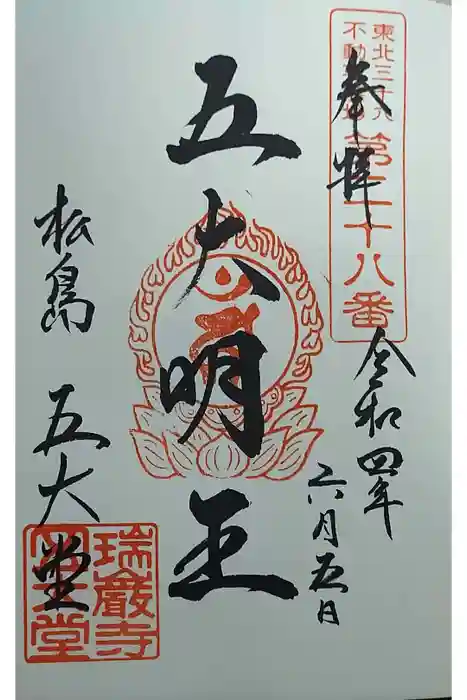 東北三十六
不動
第二十八番
奉拝
令和四年
六月五日
五大明王
松島 五大堂
瑞巖寺
五大堂